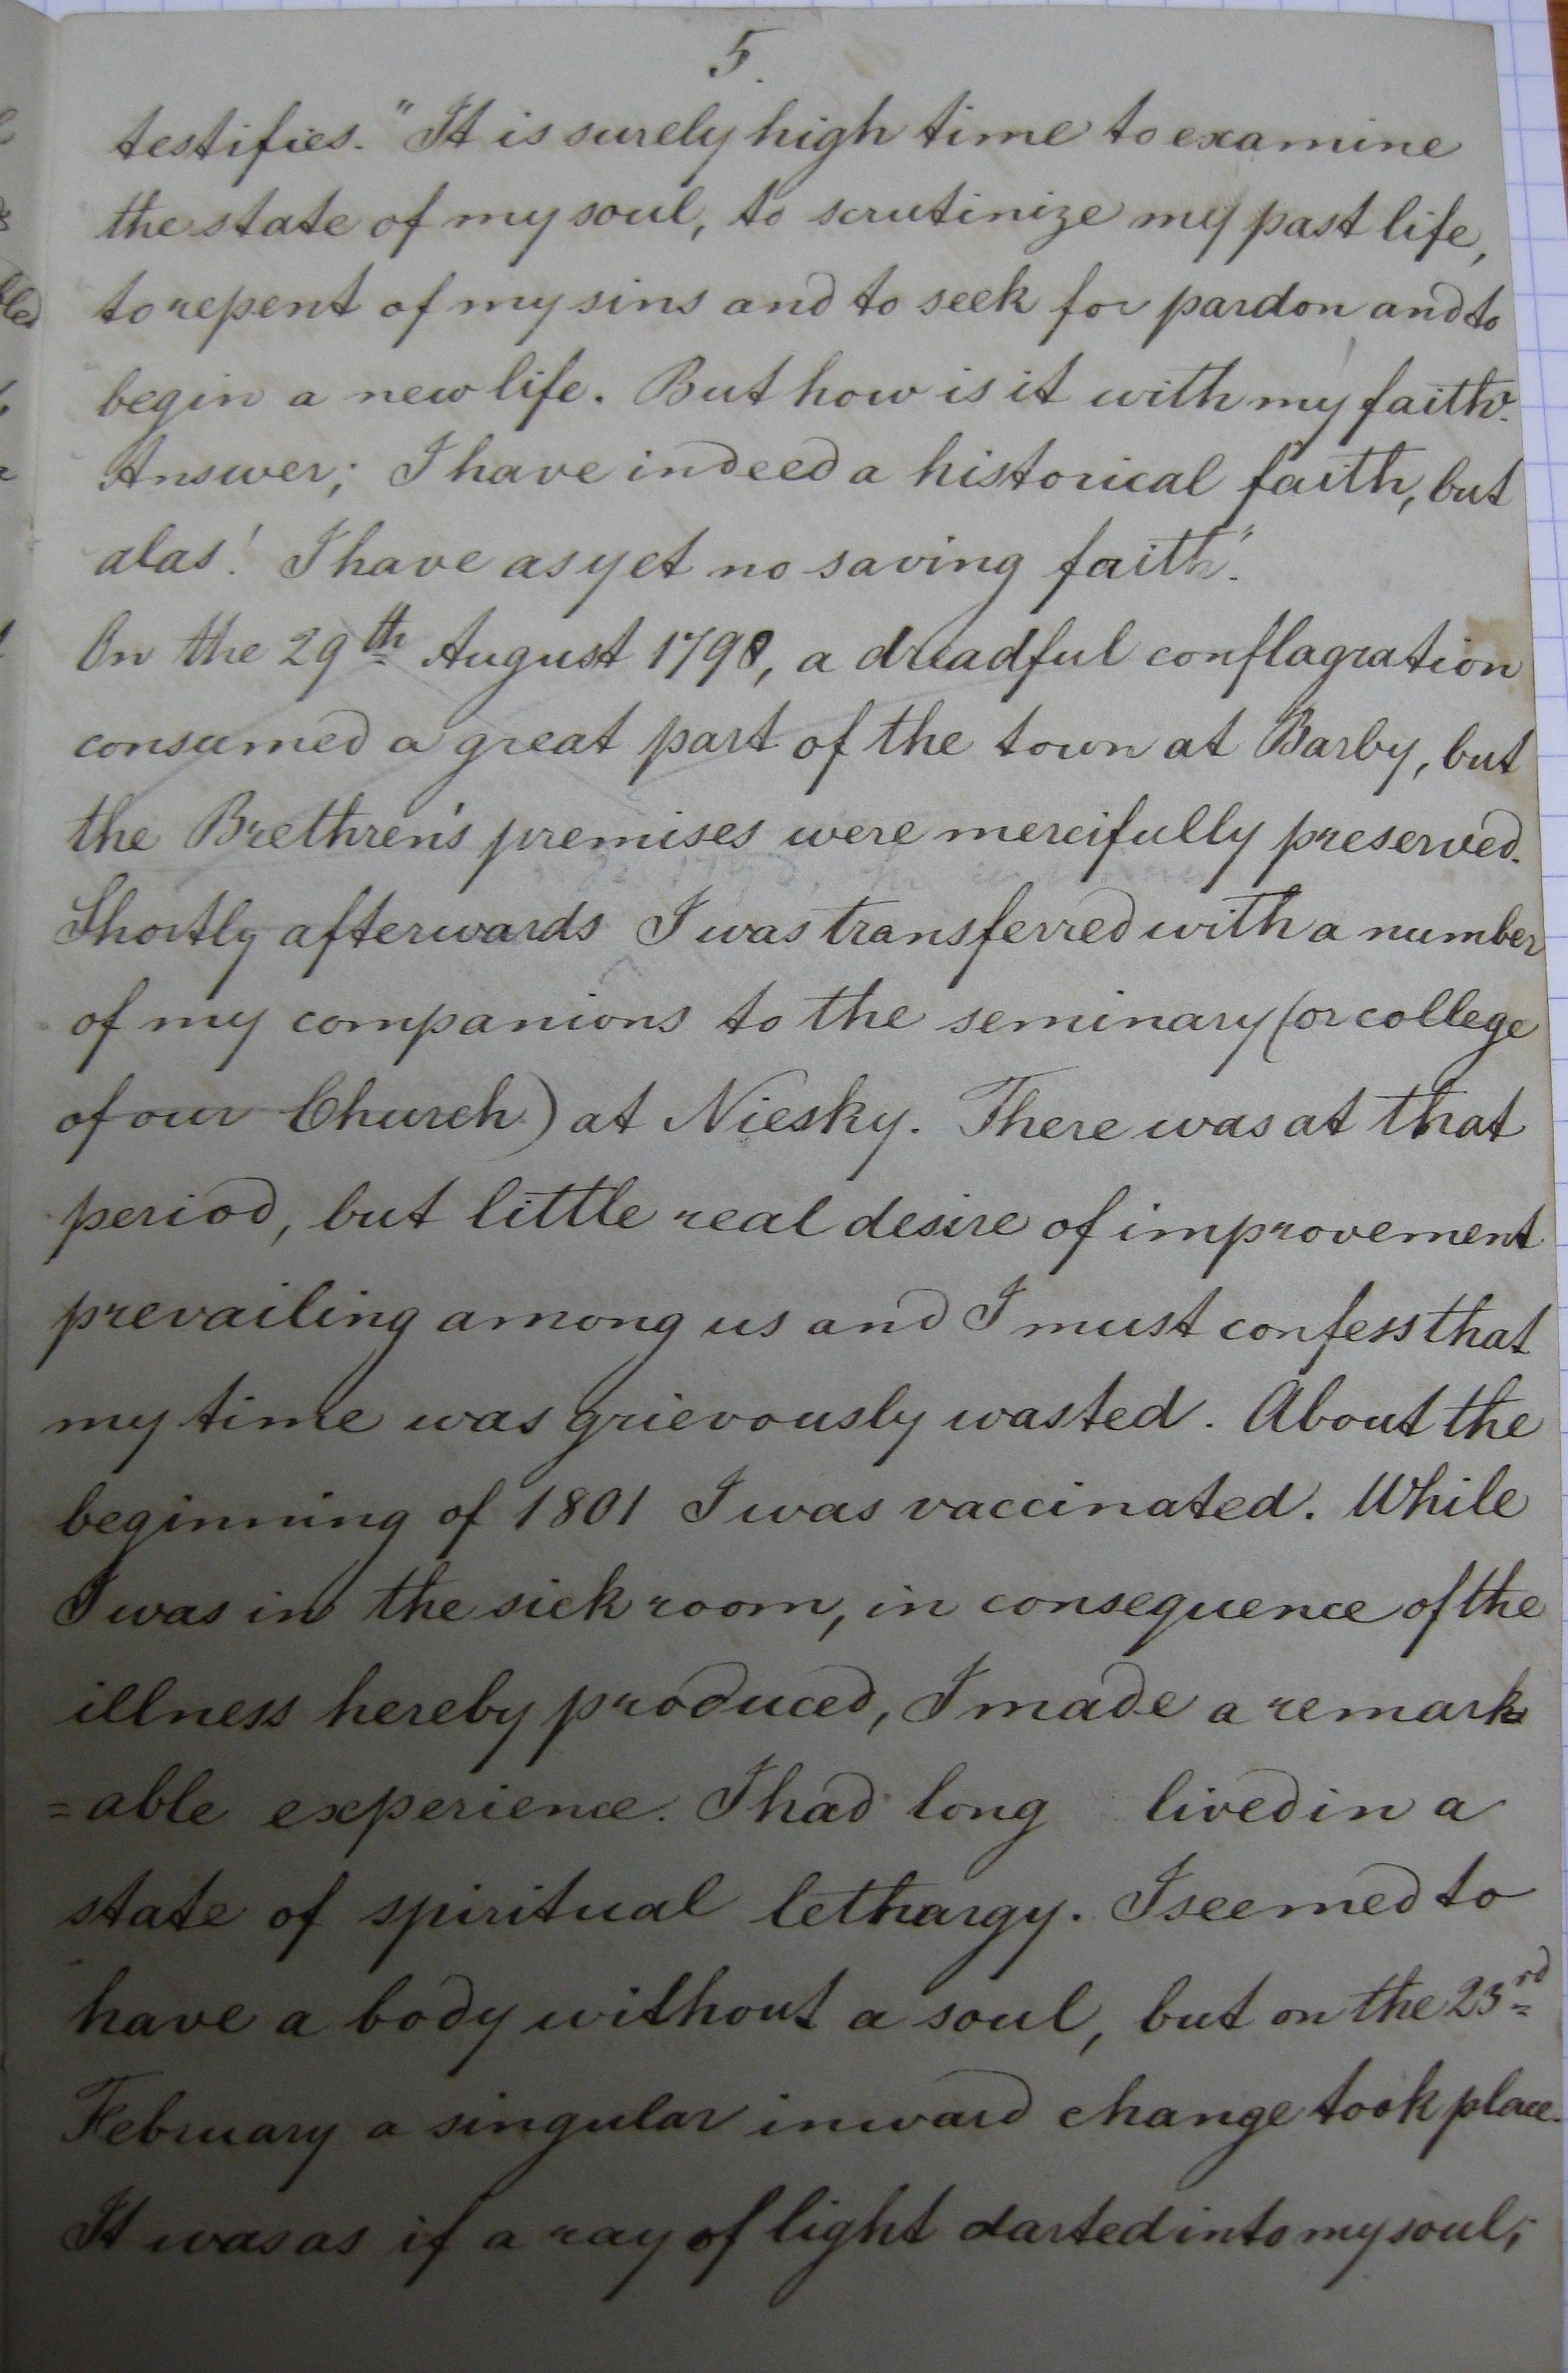 5.
testifies. "It is surely high time to examine
the state of my soul, to scrutinize my past life,
to repent of my sins and to seek for pardon and to
begin a new life. But how is it with my faith.
Answer; I have indeed a historical faith, but
alas! I have as yet no saving faith".
On the 29th August 1798, a dreadful conflagration
consumed a great part of the town at Barby, but
the Brethren's premises were mercifully preserved.
Shortly afterwards I was transferred with a number
of my companions to the seminary (or college
of our Church) at Niesky. There was at that
period, but little real desire of improvement
prevailing among us and I must confess that
my time was grievously wasted. About the
beginning of 1801 I was vaccinated. While
I was in the sick room, in consequence of the
illness hereby produced, I made a remark
=able experience. I had long lived in a
state of spiritual lethargy. I seemed to
have a body without a soul, but on the 23rd
February a singular inward change took place.
It was as if a ray of light darted into my soul;